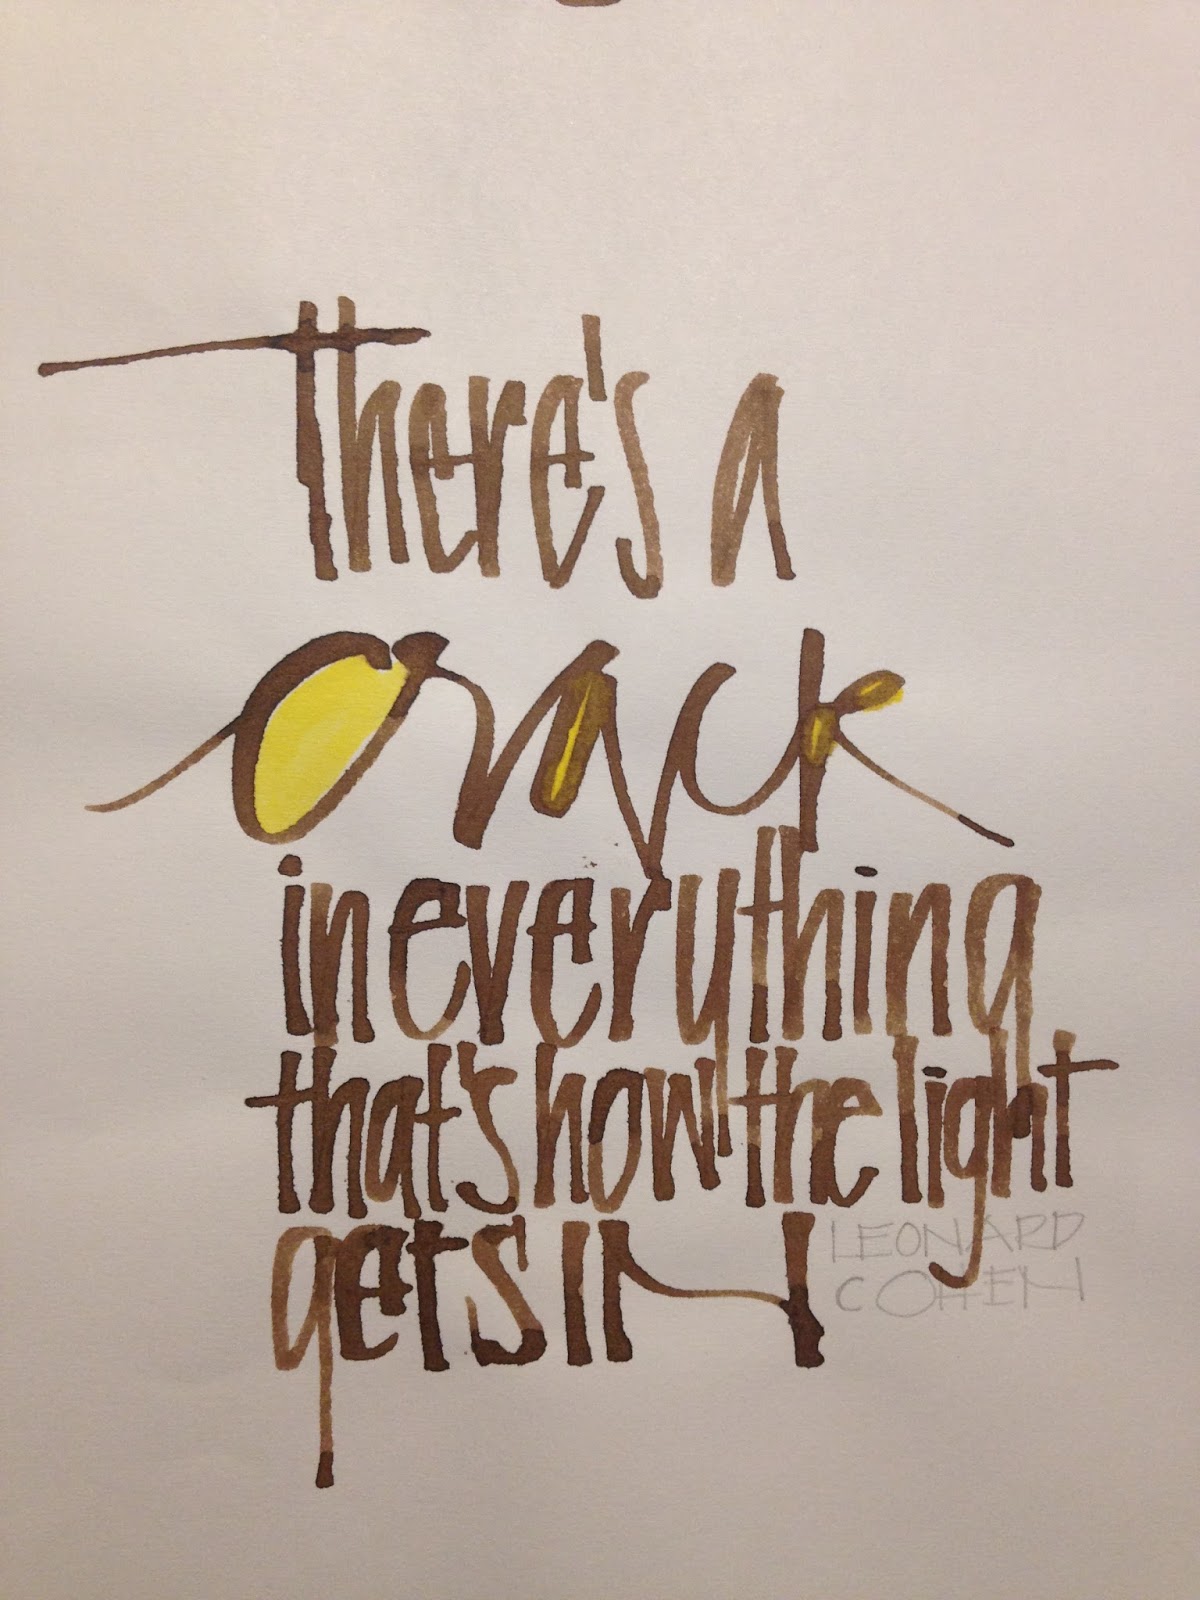 There's a
crack
in everything
that's how the light
gets in
LEONARD
COHEN